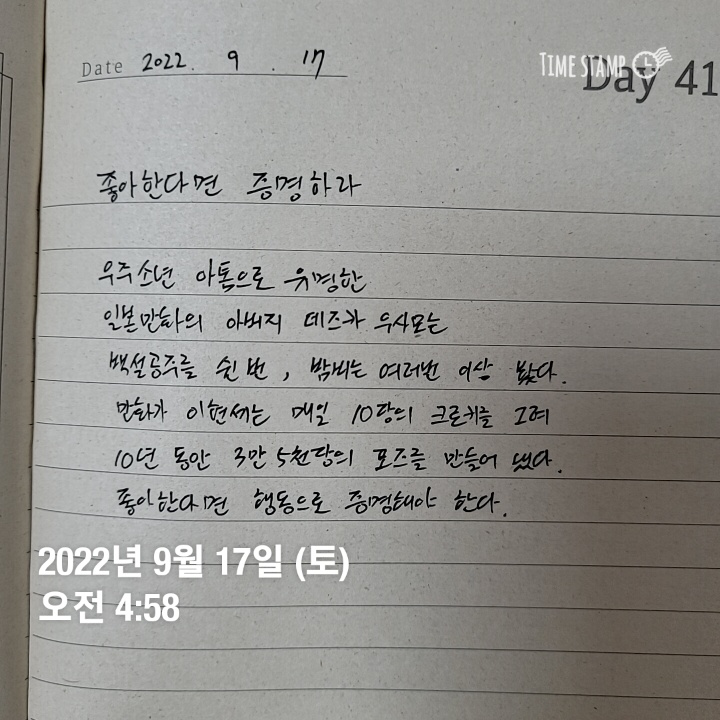 Date 2022. 9. 17
TIME STAMP
Day 41
좋아한다면 증명하라
우주소년 아톰으로 유명한
일본만화의 아버지 데즈카 우사모는
백설공주를 쉰 번, 밤비는 여러번 이상 봤다.
만화가 이현세는 매일 10장의 크로키를 그려
10년 동안 3만 5천장의 포즈를 만들어 냈다.
좋아한다면 행동으로 증명해야 한다.
2022년 9월 17일 (토)
오전 4:58